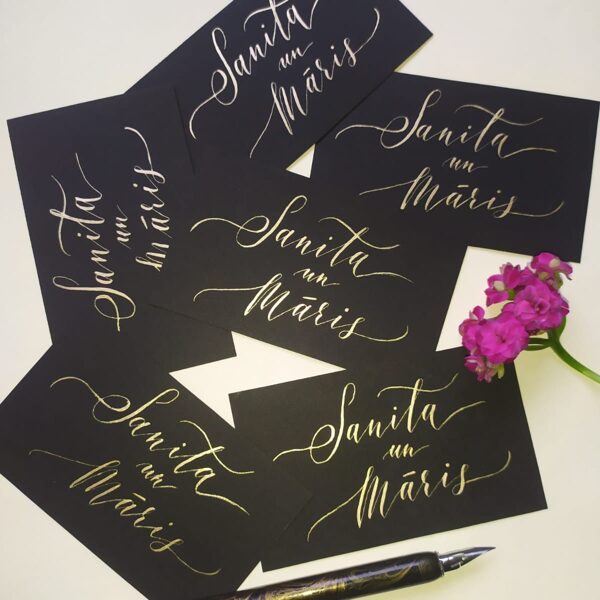 Sanita
un
Māris
Sanita
un
Māris
Sanita
un
Māris
Sanita
un
Māris
Sanita
un
Māris
Sanita
un
Māris